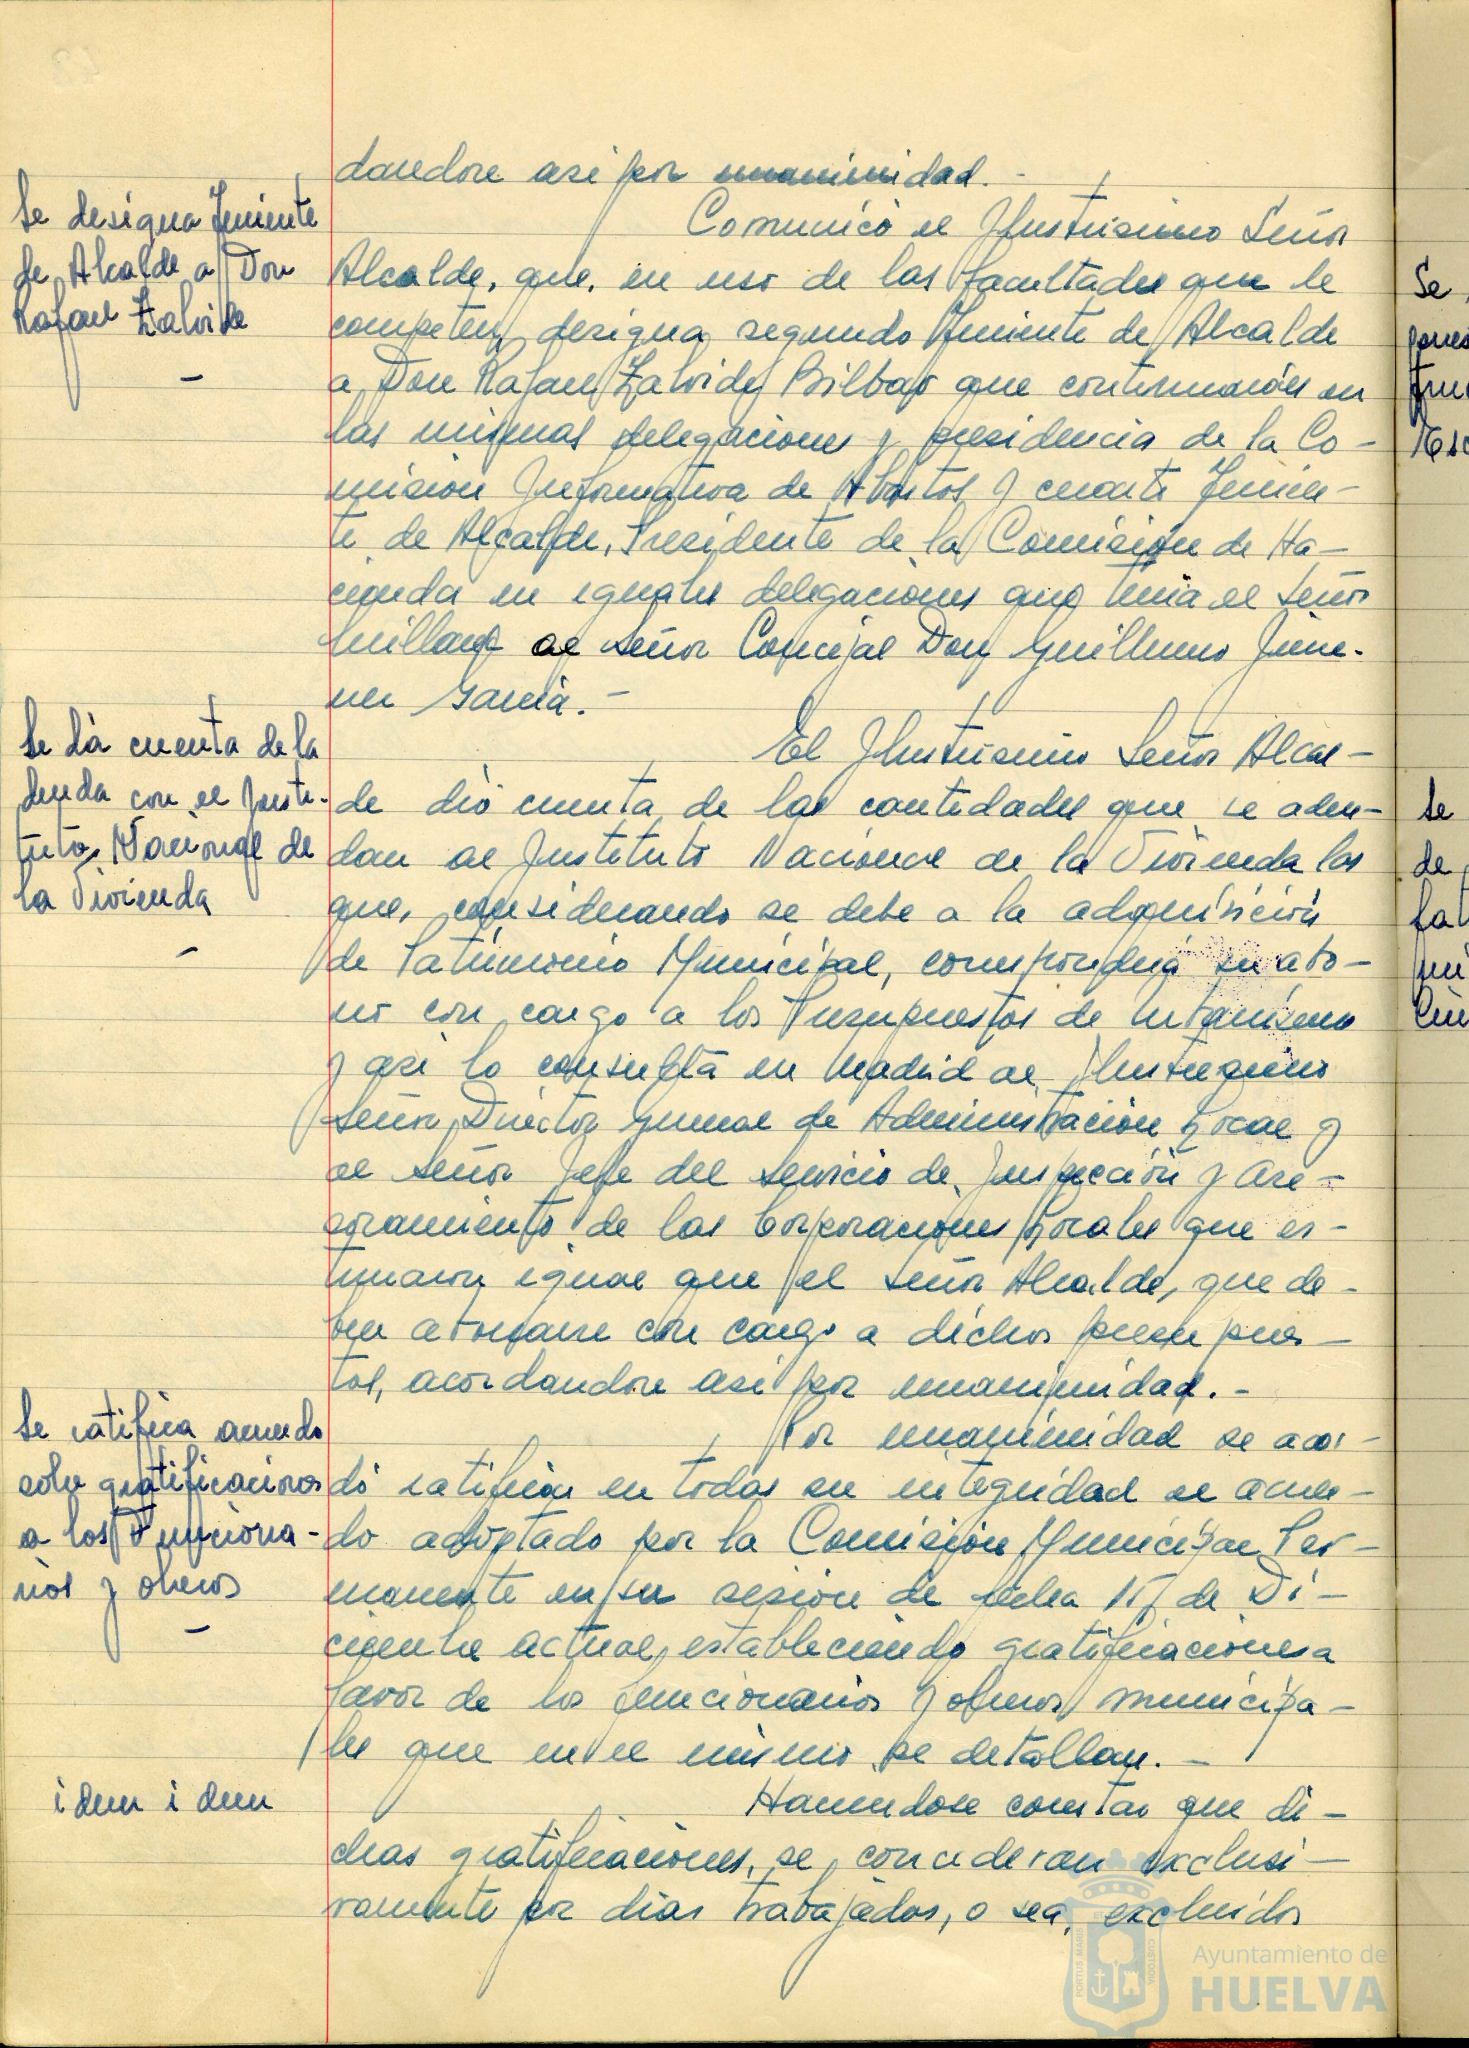 dandose asi por unanimidad. -
Se designa Teniente
de Alcalde a Don
Rafael Zalvide
-
Comunicó el Ilustrisimo Señor
Alcalde, que, en uso de las facultades que le
competen, designa segundo Teniente de Alcalde
a Don Rafael Zalvide Bilbao que continuará en
las mismas delegaciones y presidencia de la Co-
mision Informativa de Abastos y cuarto Tenien-
te de Alcalde, Presidente de la Comisión de Ha-
cienda en iguales delegaciones que tenia el Señor
al Señor Concejal Don Guillermo Jime-
nez Garcia. -
Se dá cuenta de la
deuda con el Insti-
tuto Nacional de
la Vivienda
-
El Ilustrisimo Señor Alcal-
de dió cuenta de las cantidades que se adeu-
dan al Instituto Nacional de la Vivienda las
que, considerando se debe a la adquisición
de Patrimonio Municipal, corresponderá su abo-
no con cargo a los Presupuestos de Urbanismo
y asi lo consultó en Madrid al Ilustrisimo
Señor Director General de Administración Local y
al Señor Jefe del Servicio de Inspección y Ase-
soramiento de las Corporaciones Locales que es-
timaron igual que el Señor Alcalde, que de-
ben abonarse con cargo a dichos presupues-
tos, acordandose asi por unanimidad. -
Se ratifica acuerdo
sobre gratificaciones
a los Funciona-
rios y obreros
-
Por unanimidad se acor-
dó ratificar en todas su integridad el acuer-
do adoptado por la Comisión Municipal Per-
manente en su sesión de fecha 15 de Di-
ciembre actual, estableciendo gratificaciones a
favor de los funcionarios y obreros municipa-
les que en el mismo se detallan. -
idem idem
Haciendose constar que di-
chas gratificaciones, se concederan exclusi-
vamente por dias trabajados, o sea, excluidos
Se
Se
de
PORTUS MARIS
CUSTODIA
Ayuntamiento de
HUELVA